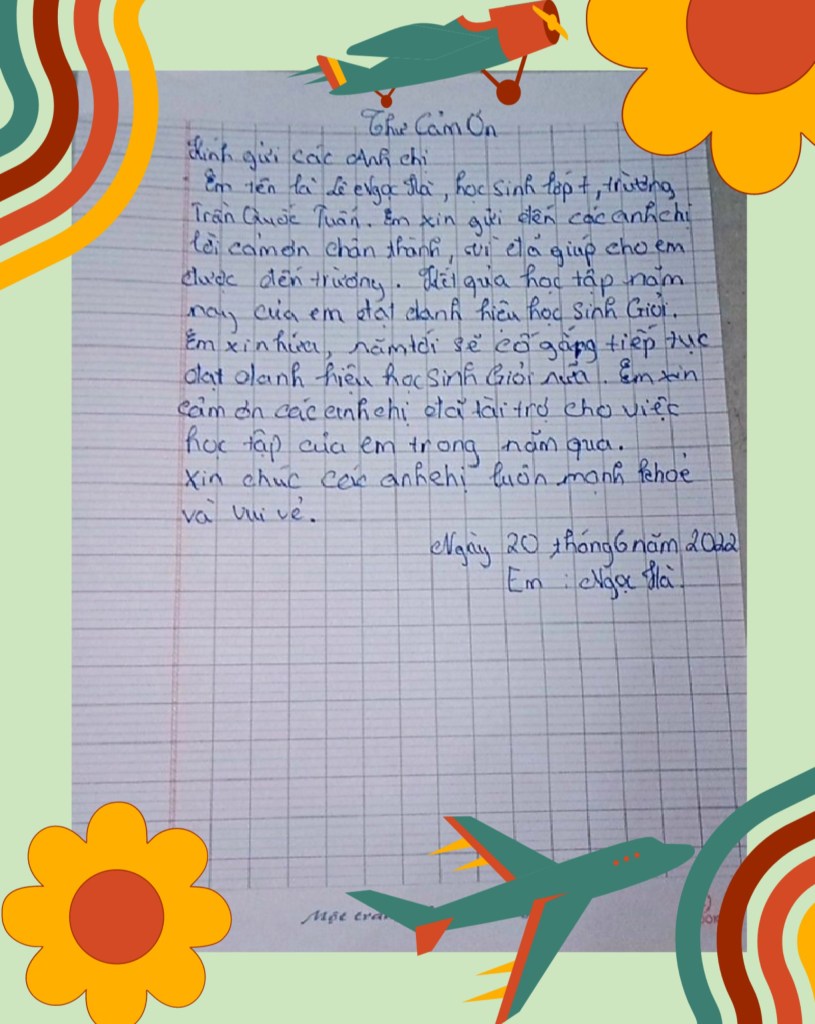 Thư Cảm Ơn
Kính gửi các Anh chị
Em tên là Lê Ngọc Hà, học sinh lớp 7, trường
Trần Quốc Tuấn. Em xin gửi đến các anh chị
lời cảm ơn chân thành, vì đã giúp cho em
được đến trường. Kết quả học tập năm
nay của em đạt danh hiệu học sinh Giỏi.
Em xin hứa, năm tới sẽ cố gắng tiếp tục
đạt danh hiệu học sinh Giỏi nữa. Em xin
cảm ơn các anh chị đã tài trợ cho việc
học tập của em trong năm qua.
Xin chúc các anh chị luôn mạnh khoẻ
và vui vẻ.
Ngày 20 tháng 6 năm 2022
Em : Ngọc Hà
Một